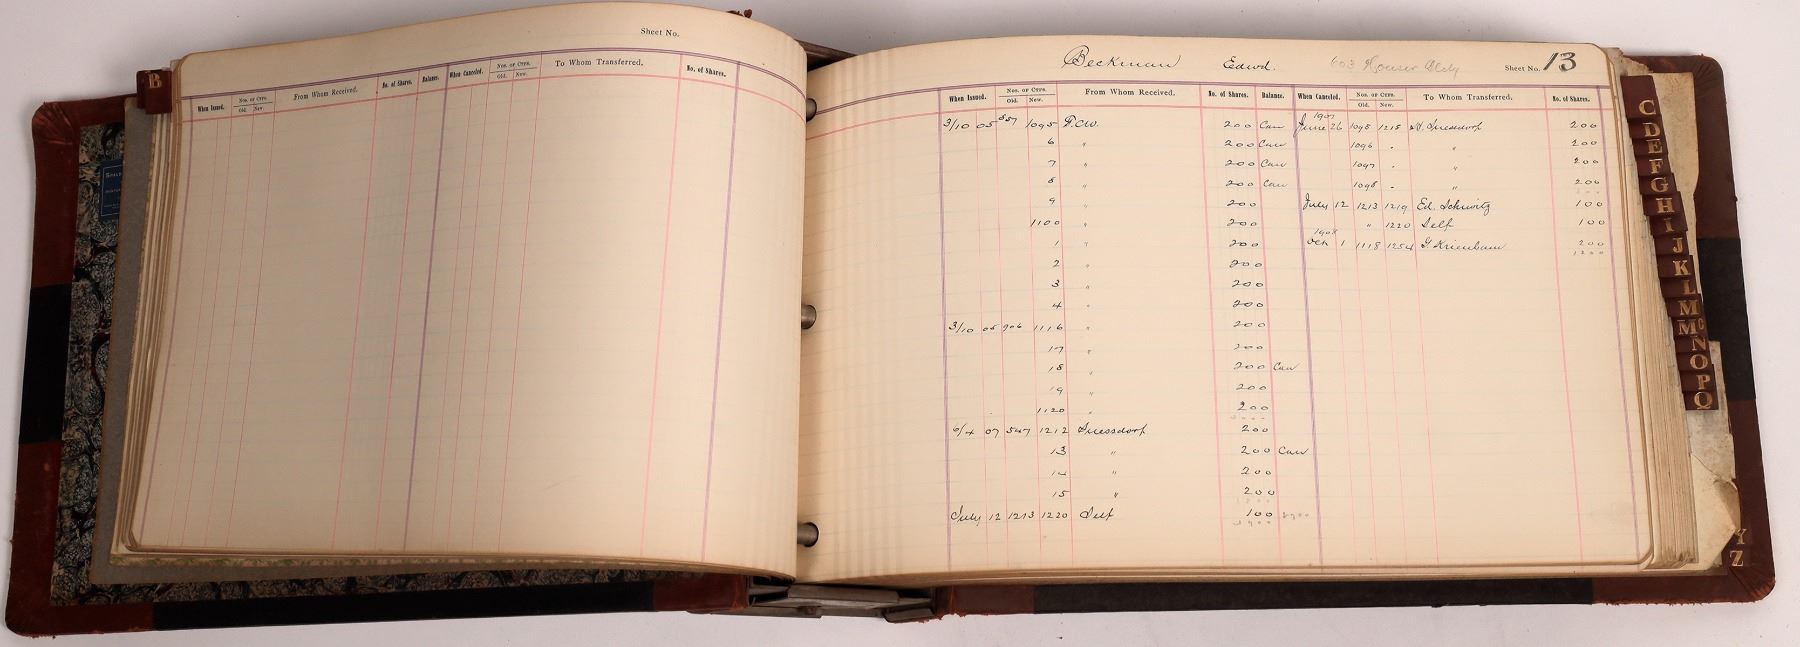 B
Sheet No.
When Issued. Nos. of Ctfs. Old. New. From Whom Received. No. of Shares. Balance. When Canceled. Nos. of Ctfs. Old. New. To Whom Transferred. No. of Shares.
Beckman Edwd. 603 Bldg Sheet No. 13
When Issued. Nos. of Ctfs. Old. New. From Whom Received. No. of Shares. Balance. When Canceled. Nos. of Ctfs. Old. New. To Whom Transferred. No. of Shares.
1907
3/10 05 857 1095 F.C.W. 200 Can June 26 1095 1215 200
6 " 200 Can 1096 " " 200
7 " 200 Can 1097 " " 200
8 " 200 Can 1098 " " 200
9 " 200 July 12 1213 1219 Ed. 100
1100 " 200 " 1220 Self 100
1908
1 " 200 1 1118 1254 200
2 " 200 1200
3 " 200
4 " 200
3/10 05 906 1116 " 200
17 " 200
18 " 200 Can
19 " 200
1120 " 200
6/4 07 547 1212 200
13 " 200 Can
14 " 200
15 " 200
July 12 1213 1220 Self 100
C
D
E
F
G
H
I
J
K
L
M
Mc
N
O
P
Q
Y
Z